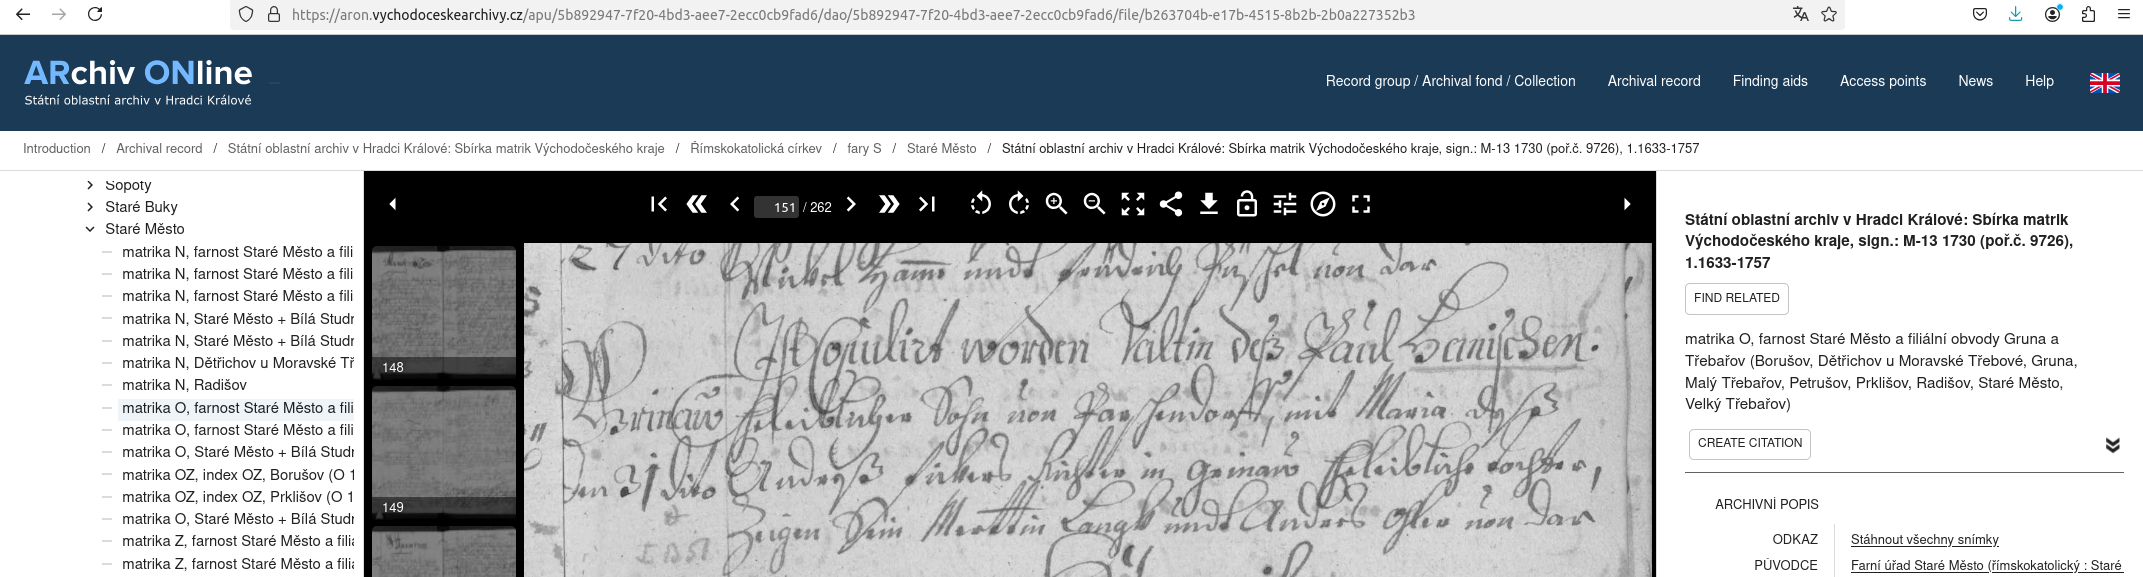 https://aron.vychodoceskearchivy.cz/apu/5b892947-7f20-4bd3-aee7-2ecc0cb9fad6/dao/5b892947-7f20-4bd3-aee7-2ecc0cb9fad6/file/b263704b-e17b-4515-8b2b-2b0a227352b3
ARchiv ONline
Státní oblastní archiv v Hradci Králové
Record group / Archival fond / Collection Archival record Finding aids Access points News Help
Introduction / Archival record / Státní oblastní archiv v Hradci Králové: Sbírka matrik Východočeského kraje / Římskokatolická církev / fary S / Staré Město / Státní oblastní archiv v Hradci Králové: Sbírka matrik Východočeského kraje, sign.: M-13 1730 (poř.č. 9726), 1.1633-1757
Sopoty
Staré Buky
Staré Město
matrika N, farnost Staré Město a fili
matrika N, farnost Staré Město a fili
matrika N, farnost Staré Město a fili
matrika N, Staré Město + Bílá Studr
matrika N, Staré Město + Bílá Studr
matrika N, Dětřichov u Moravské Tř
matrika N, Radišov
matrika O, farnost Staré Město a fili
matrika O, farnost Staré Město a fili
matrika O, Staré Město + Bílá Studr
matrika OZ, index OZ, Borušov (O 1
matrika OZ, index OZ, Prklišov (O 1
matrika O, Staré Město + Bílá Studr
matrika Z, farnost Staré Město a filia
matrika Z, farnost Staré Město a filia
151 / 262
148
149
27 dito
Hamm undt von dar
Ist Copulirt worden Valtin deß Paul Henischen.
Grinaw Eheleibliger Sohn von mit Maria
den 31 dito Andreß Richter in Grinaw Eheleibliche tochter,
Zeugen Sein Merttin Lang undt Andres von dar
Státní oblastní archiv v Hradci Králové: Sbírka matrik
Východočeského kraje, sign.: M-13 1730 (poř.č. 9726),
1.1633-1757
FIND RELATED
matrika O, farnost Staré Město a filiální obvody Gruna a
Třebařov (Borušov, Dětřichov u Moravské Třebové, Gruna,
Malý Třebařov, Petrušov, Prklišov, Radišov, Staré Město,
Velký Třebařov)
CREATE CITATION
ARCHIVNÍ POPIS
ODKAZ Stáhnout všechny snímky
PŮVODCE Farní úřad Staré Město (římskokatolický : Staré